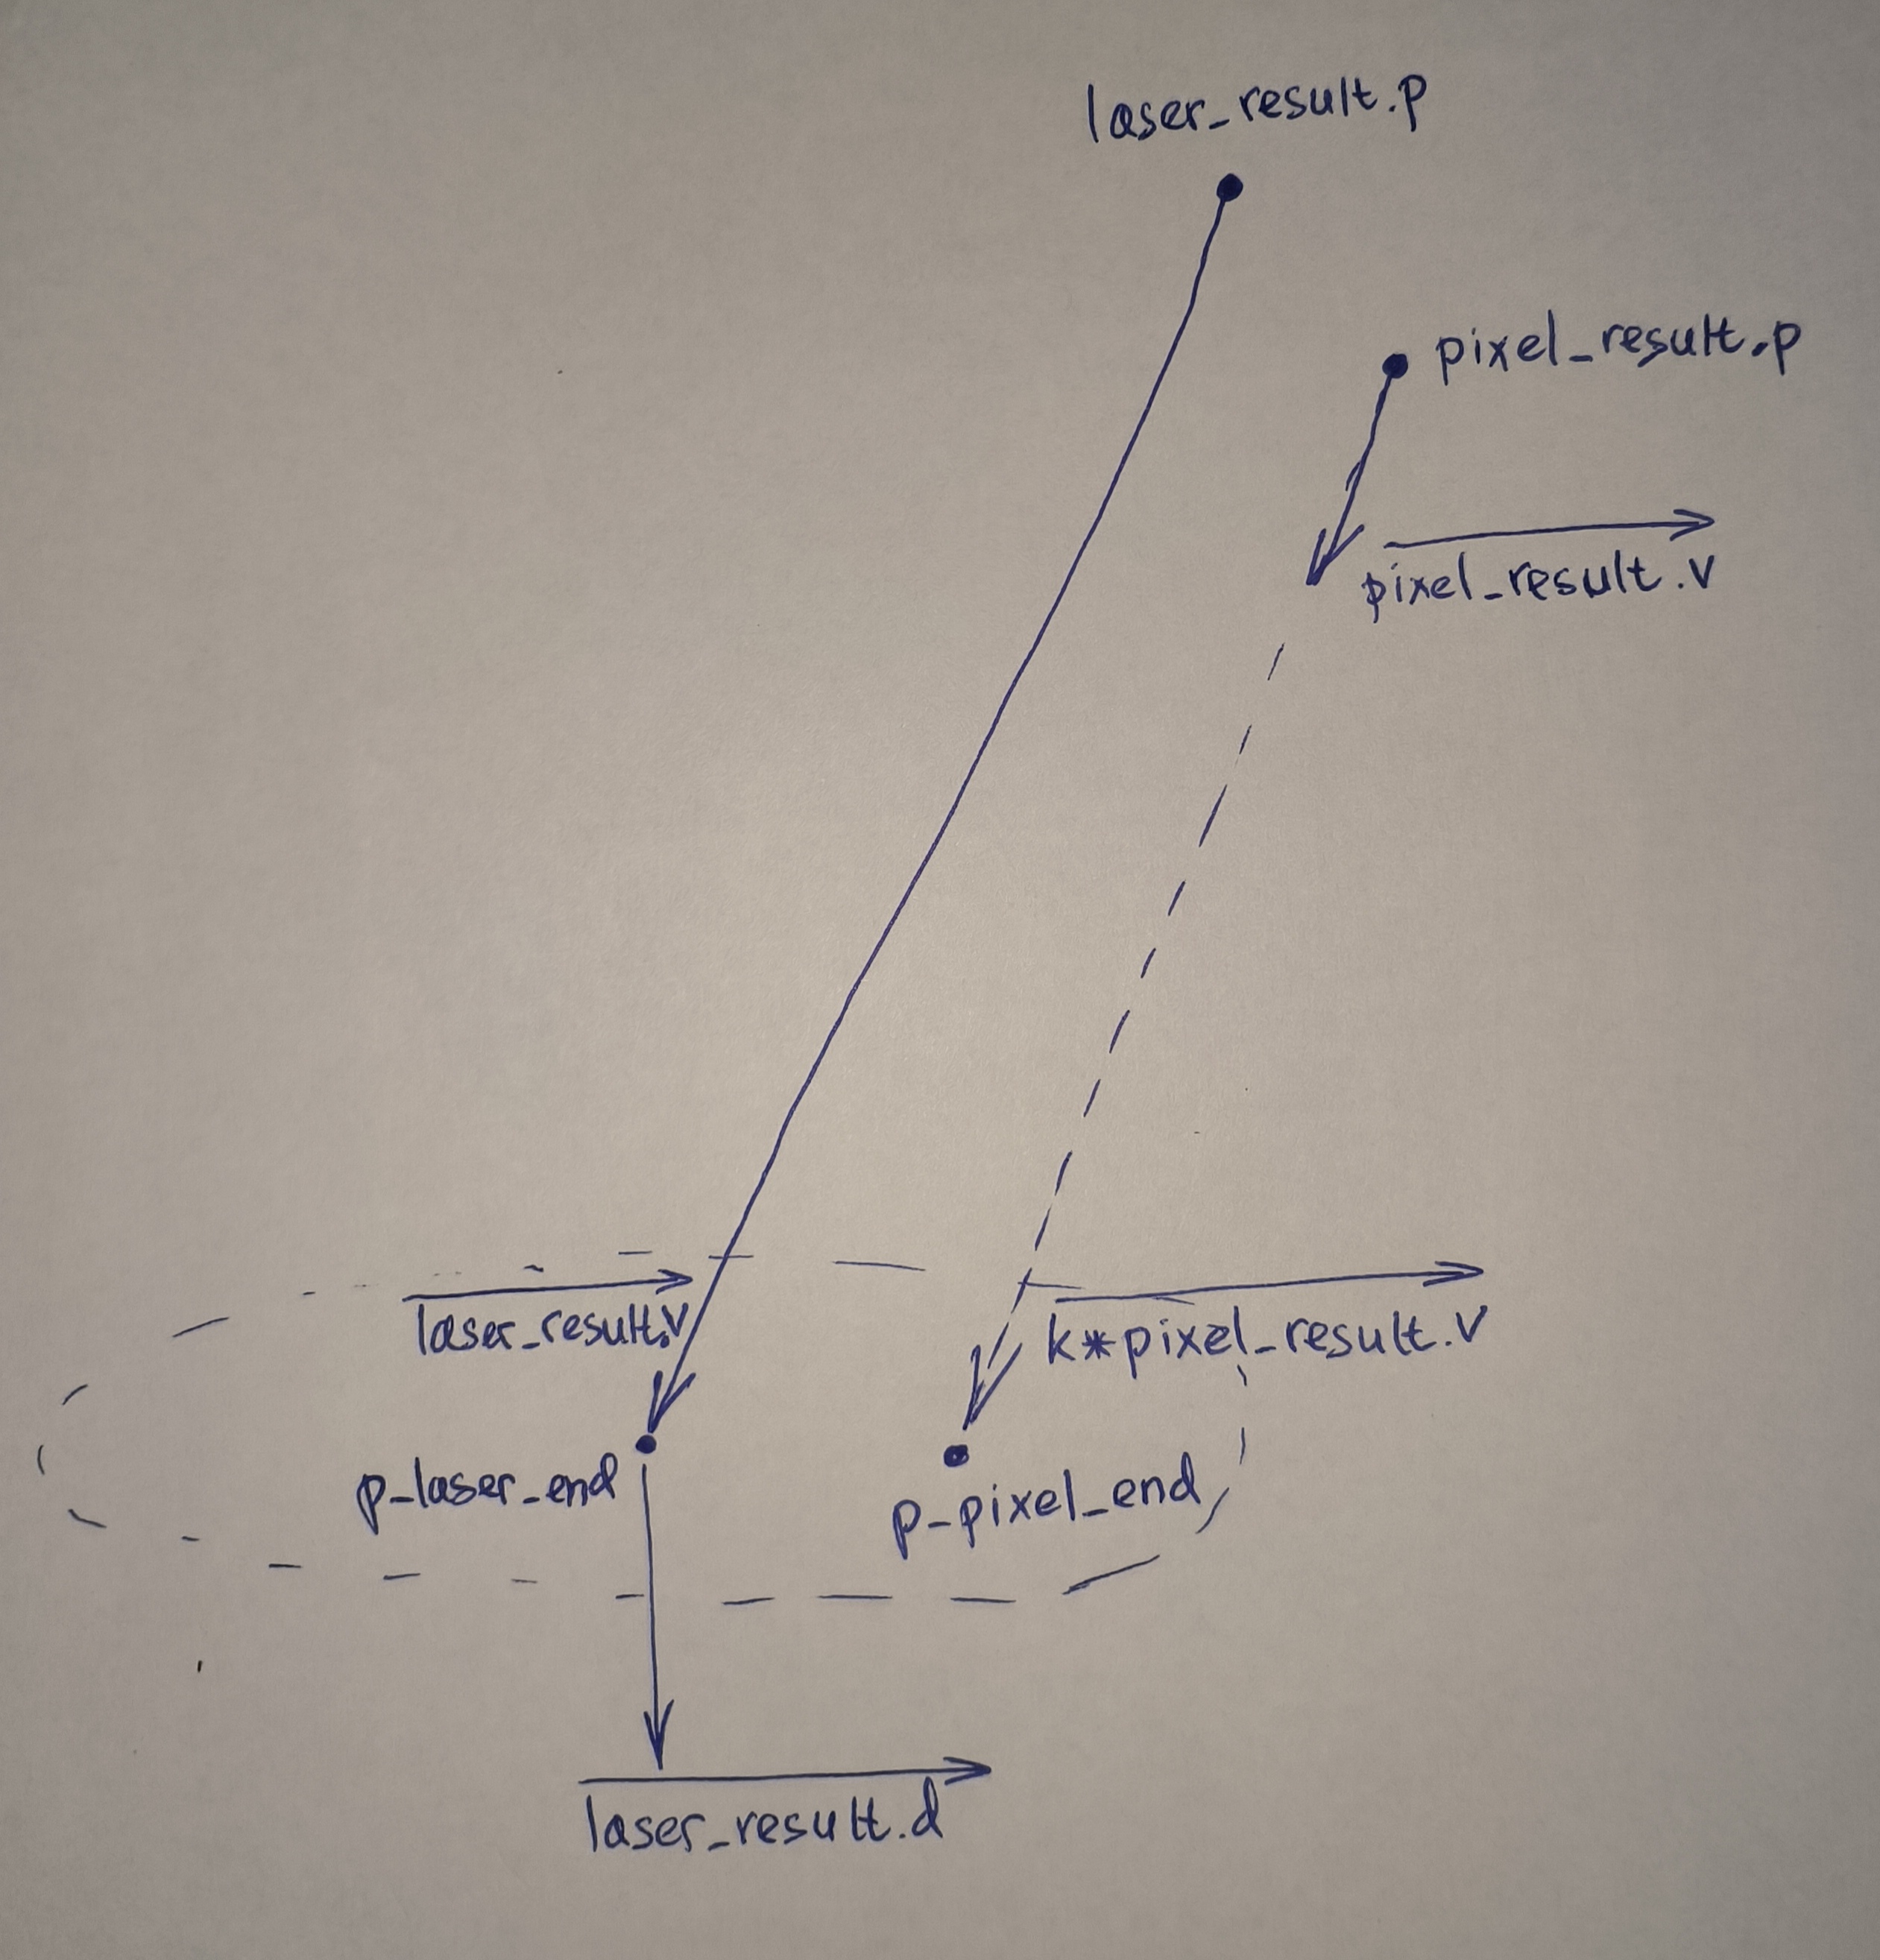 laser_result.p
pixel_result.p
pixel_result.v
laser_result.v
k*pixel_result.v
p_laser_end
p_pixel_end
laser_result.d